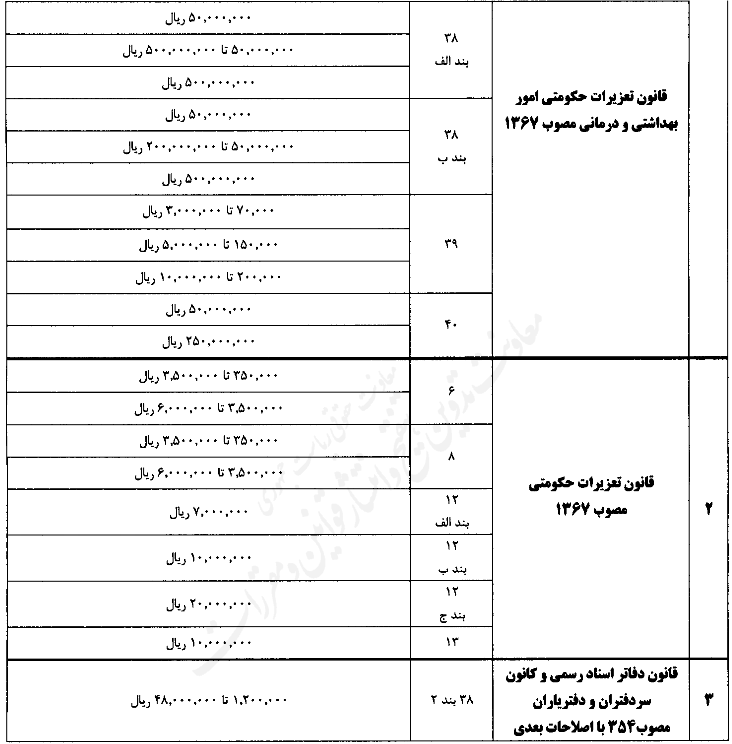 قانون تعزیرات حکومتی امور
بهداشتی و درمانی مصوب ۱۳۶۷
۳۸
بند الف
۵۰,۰۰۰,۰۰۰ ریال
۵۰,۰۰۰,۰۰۰ تا ۵۰۰,۰۰۰,۰۰۰ ریال
۵۰۰,۰۰۰,۰۰۰ ریال
۳۸
بند ب
۵۰,۰۰۰,۰۰۰ ریال
۵۰,۰۰۰,۰۰۰ تا ۲۰۰,۰۰۰,۰۰۰ ریال
۵۰۰,۰۰۰,۰۰۰ ریال
۳۹
۷۰,۰۰۰ تا ۳,۰۰۰,۰۰۰ ریال
۱۵۰,۰۰۰ تا ۵,۰۰۰,۰۰۰ ریال
۲۰۰,۰۰۰ تا ۱۰,۰۰۰,۰۰۰ ریال
۴۰
۵۰,۰۰۰,۰۰۰ ریال
۲۵۰,۰۰۰,۰۰۰ ریال
۲
قانون تعزیرات حکومتی
مصوب ۱۳۶۷
۶
۳۵۰,۰۰۰ تا ۳,۵۰۰,۰۰۰ ریال
۳,۵۰۰,۰۰۰ تا ۶,۰۰۰,۰۰۰ ریال
۸
۳۵۰,۰۰۰ تا ۳,۵۰۰,۰۰۰ ریال
۳,۵۰۰,۰۰۰ تا ۶,۰۰۰,۰۰۰ ریال
۱۲
بند الف
۷,۰۰۰,۰۰۰ ریال
۱۲
بند ب
۱۰,۰۰۰,۰۰۰ ریال
۱۲
بند ج
۲۰,۰۰۰,۰۰۰ ریال
۱۳
۱۰,۰۰۰,۰۰۰ ریال
۳
قانون دفاتر اسناد رسمی و کانون
سردفتران و دفتریاران
مصوب۳۵۴ با اصلاحات بعدی
۳۸ بند ۲
۱,۲۰۰,۰۰۰ تا ۴۸,۰۰۰,۰۰۰ ریال
معاونت تدوین تنقیح و انتشار قوانین و مقررات
معاونت حقوقی ریاست جمهوری